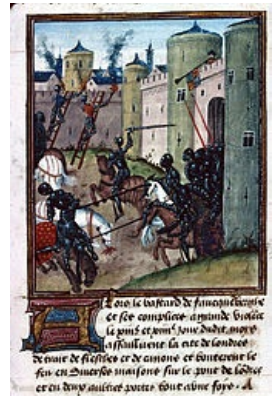 Lors le bastard de faucquemberghe
et ses complices a grande violēce
le
assaillirent la cite de londres
de trait de flesches et de canons et bouterent le
feu en diverses maisons sur le pont de lōdres
et en deux aultres portes tout a une foys. A